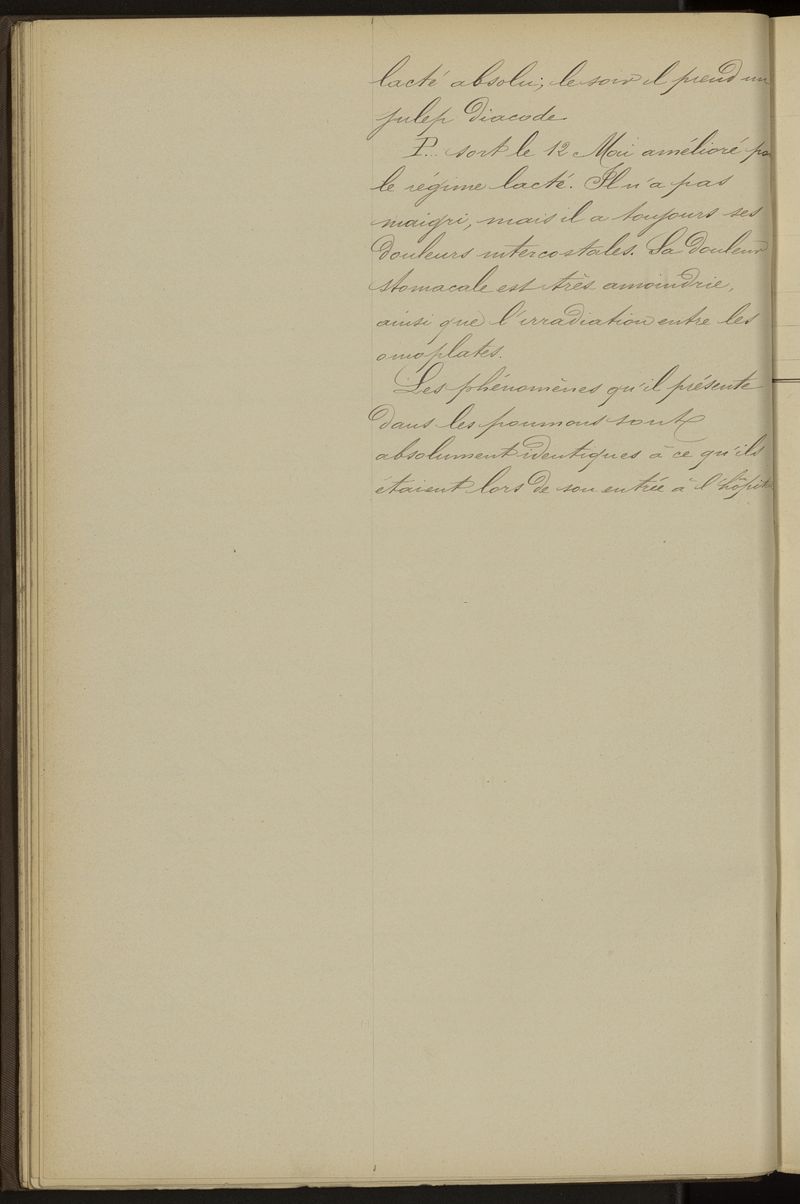 lacté absolu; le soir il prend un
julep diacode
P... sort le 12 Mai amélioré pa
le régime lacté. Il n'a pas
maigri, mais il a toujours ses
douleurs intercostales. La douleur
stomacale est très amoindrie,
ainsi que l'irradiation entre les
omoplates.
Les phénomènes qu'il présente
dans les poumons sont
absolument identiques à ce qu'ils
étaient lors de son entrée à l'hôpit